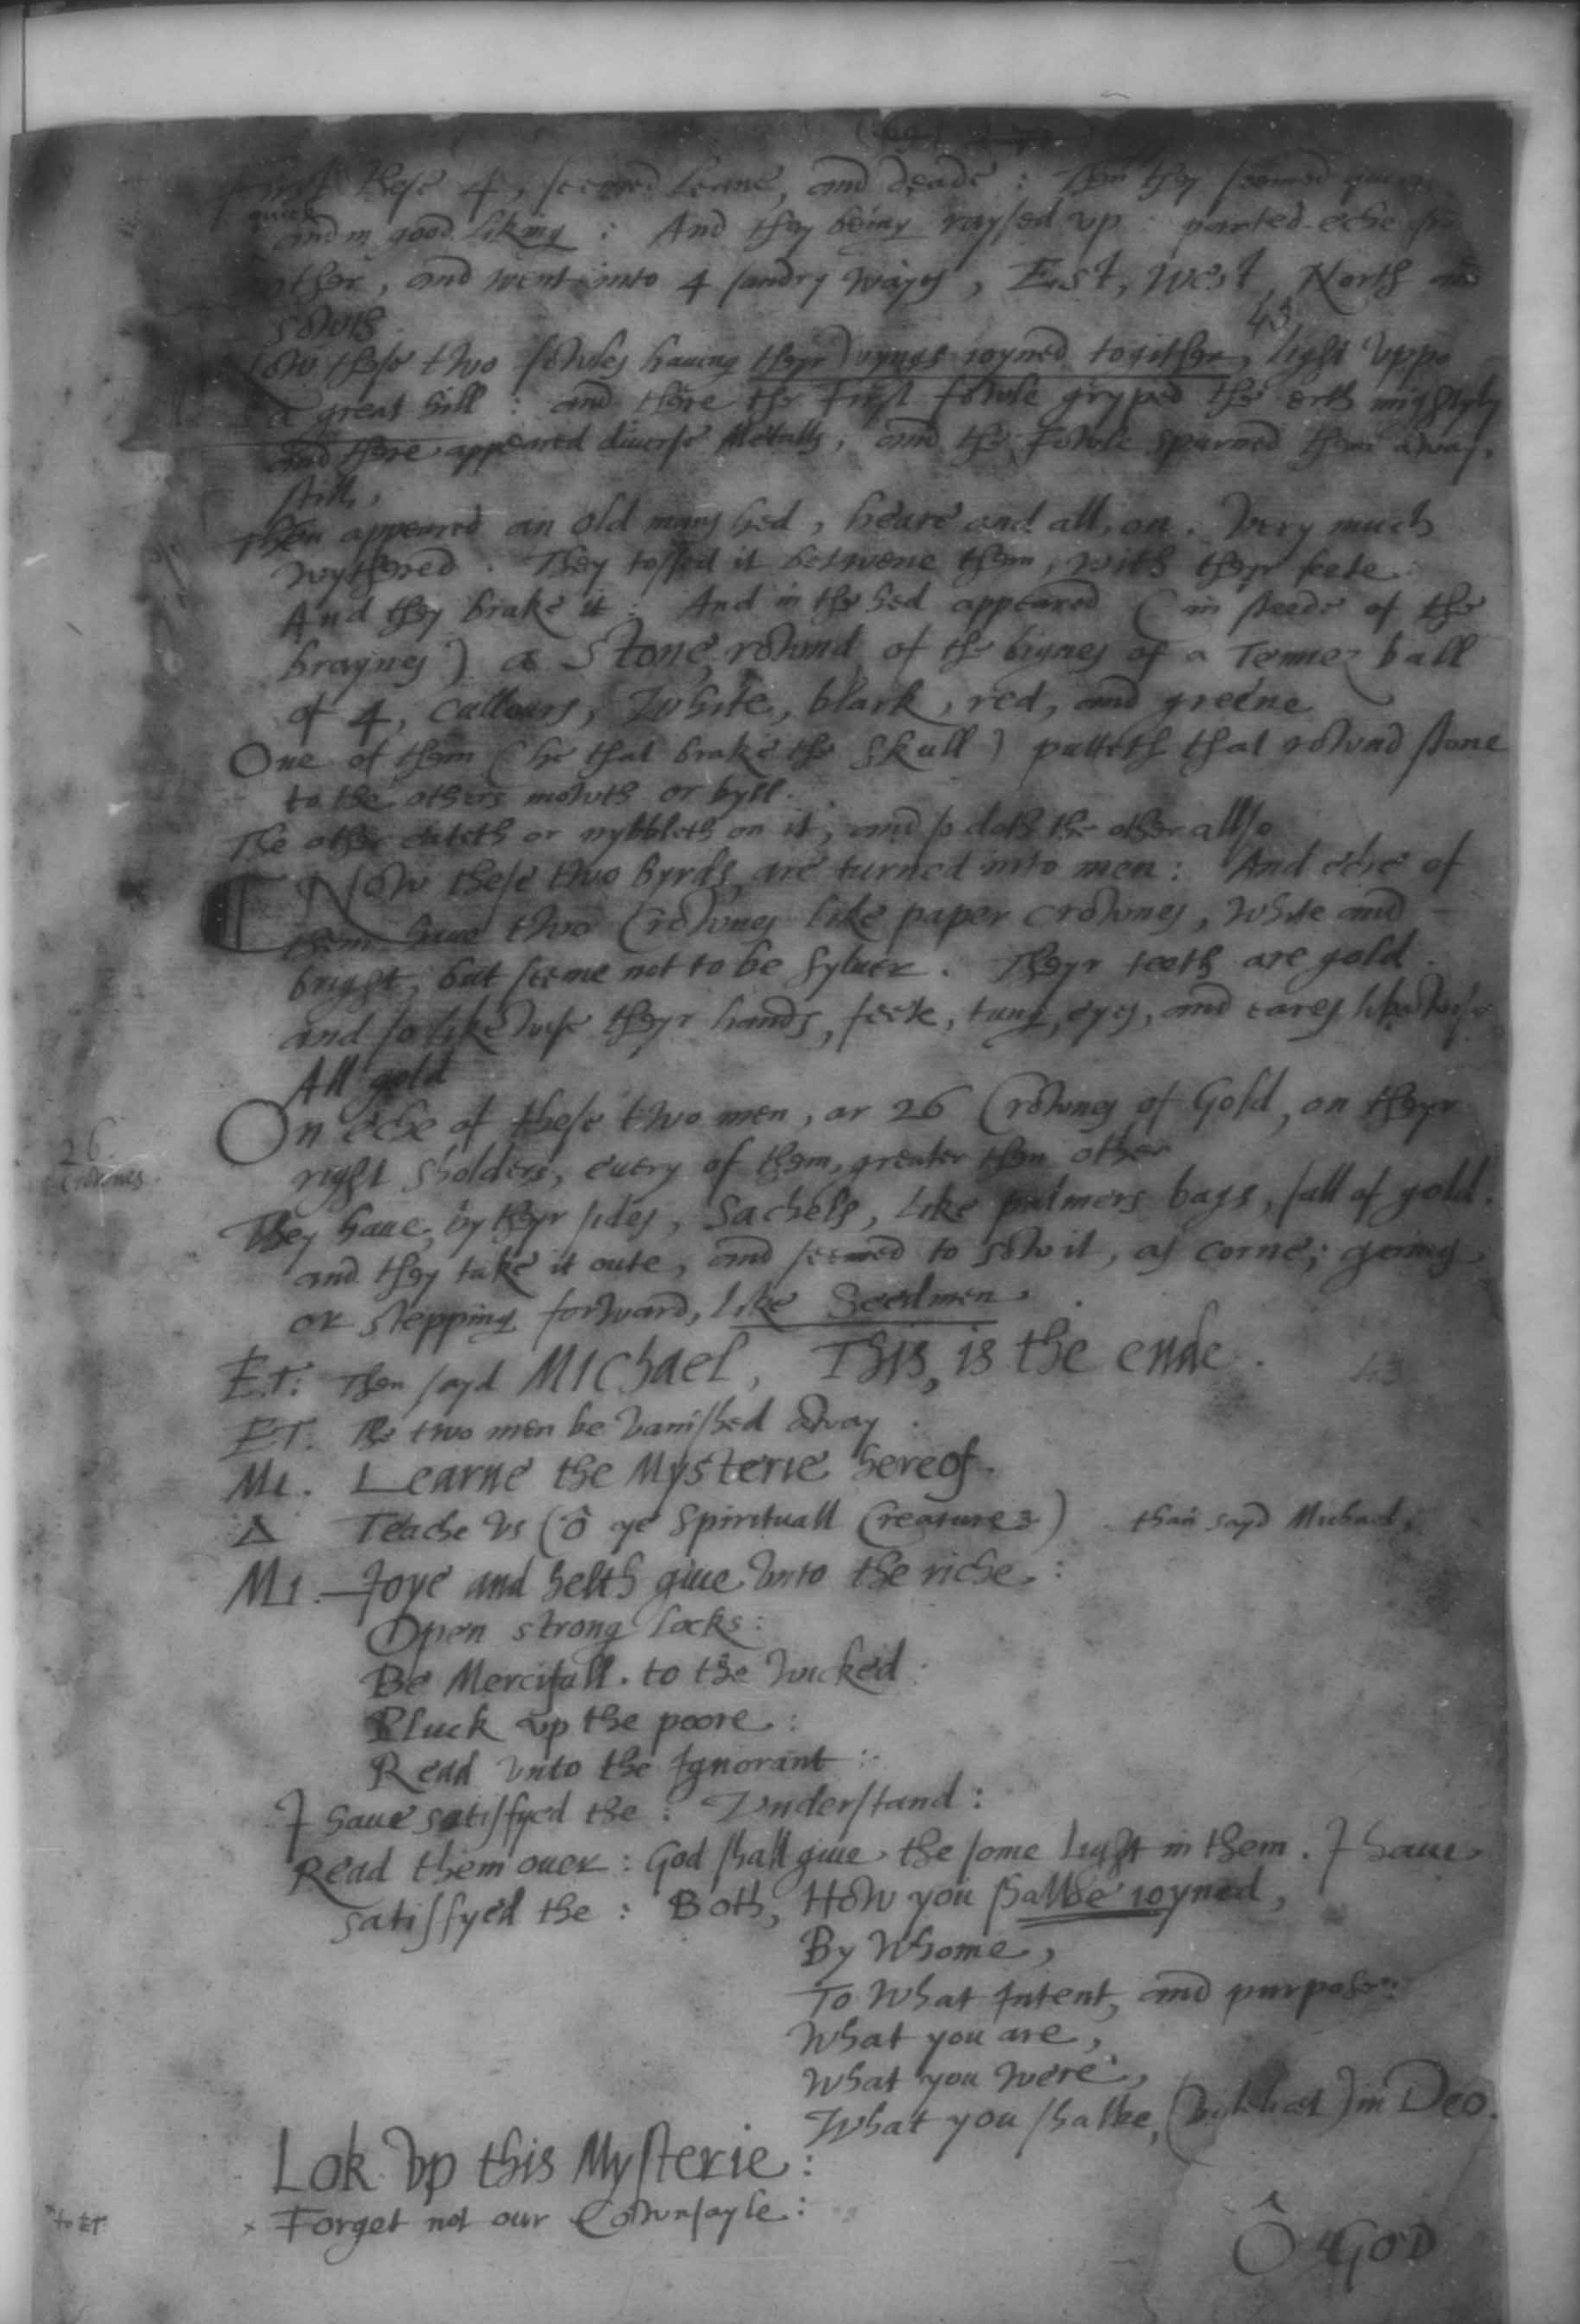 these 4, seemed leane, and deade : Then they seemed
quick
and in good liking : And they being raysed up : parted eche
other, and went into 4 sundry wayes, East, West, North and
sowth.
43
Now these two fowles having theyr wyngs ioyned togither, light uppo
a great hill : and there the First fowle gryped the erth mightyly
and there appeared diverse Metalls, and the Fowle spurned them away,
still,
Then appeared an old mans hed, heare and all, on. Very much
wythered. They tossed it betwene them, with theyr feete :
And they brake it : And in the hed appeared (in steede of the
braynes) a Stone, rownd, of the bignes of a Tennez ball
of 4, cullours, White, black, red, and greene
One of them (he that brake the skull) putteth that rownd stone
to the others mowth or byll.
The other eateth or nybbleth on it, and so doth the other allso
Now these two byrds, are turned into men : And eche of
them have two Crownes like paper crownes, white and
bright, but seeme not to be sylver. Theyr teeth are gold.
and so likewise theyr hands, feete, tung, eyes, and eares likewise
All gold
On eche of these two men, ar 26 Crownes of Gold, on theyr
26.
Crownes.
right sholders, every of them, greater then other
They have, by theyr sides, Sachels, like palmers bags, full of gold.
and they take it oute, and seemed to sow it, as corne; going
or stepping forward, like Seedmen.
E.T: Then sayd MIchael, This, is the ende.
43
ET. The two men be vanished away.
MI. Learne the Mysterie hereof.
Δ Teache us (ô ye Spirituall Creatures) . than sayd Michael,
MI. Joye and helth give unto the riche :
Open strong locks :
Be Mercifull. to the wicked :
Pluck up the poore :
Read unto the Ignorant :
I have satisfyed the : Understand :
Read them over : God shall give the some light in them. I have
satisfyed the : Both, How you shalbe ioyned,
By Whome,
To What Intent, and purpose:
What you are,
What you were,
What you shalbe, in Deo.
Lok up this Mysterie :
to ET. Forget not our Cownsayle :
Ô GOD